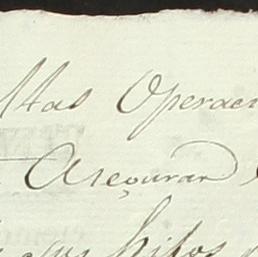 ltas Operaci
Aseguran
sus hijos